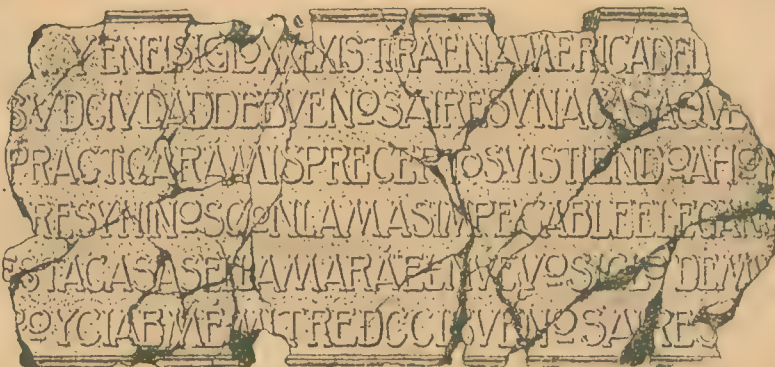 YENELSIGLOXXEXISTIRAENAMERICADEL
SVDCIVDADDEBVENOSAIRESVNACASAQVE
PRACTICARAMISPRECEPTOSVISTIENDOAHOM
RESYNINOSCONLAMASIMPECABLEELEGAN
ESTACASASELLAMARAEN
SIGLO
YCIA
MITRE
BVENOSAIRES